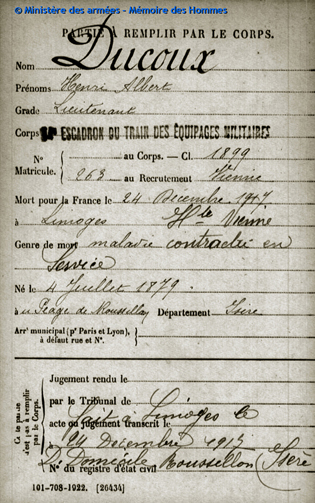 © Ministère des armées - Mémoire des Hommes
PARTIE À REMPLIR PAR LE CORPS.
Nom Ducoux
Prénoms Henri Albert
Grade Lieutenant
Corps ESCADRON DU TRAIN DES ÉQUIPAGES MILITAIRES
N° au Corps. — Cl. 1899
Matricule. 263 au Recrutement Vienne
Mort pour la France le 24 Décembre 1917
à Limoges Hte Vienne
Genre de mort maladie contractée en
Service
Né le 4 Juillet 1879.
à Péage de Roussillon Département Isère
Arrt municipal (pr Paris et Lyon),
à défaut rue et N°.
Ce cadre
n'est pas à remplir
par le Corps.
Jugement rendu le
par le Tribunal de
acte ou jugement transcrit le
à Limoges le
24 Décembre 1917
Domicile Roussillon (Isère)
N° du registre d'état civil
101-708-1922. [26434]